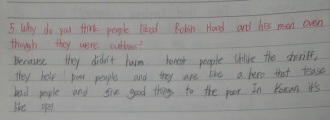 5. Why do you think people liked Robin Hood and his men even
though they were outlaws?
Because they didn't harm honest people unlike the sheriff,
they help poor people and they are like a hero that tease
bad people and give good things to the poor In Korean it's
like